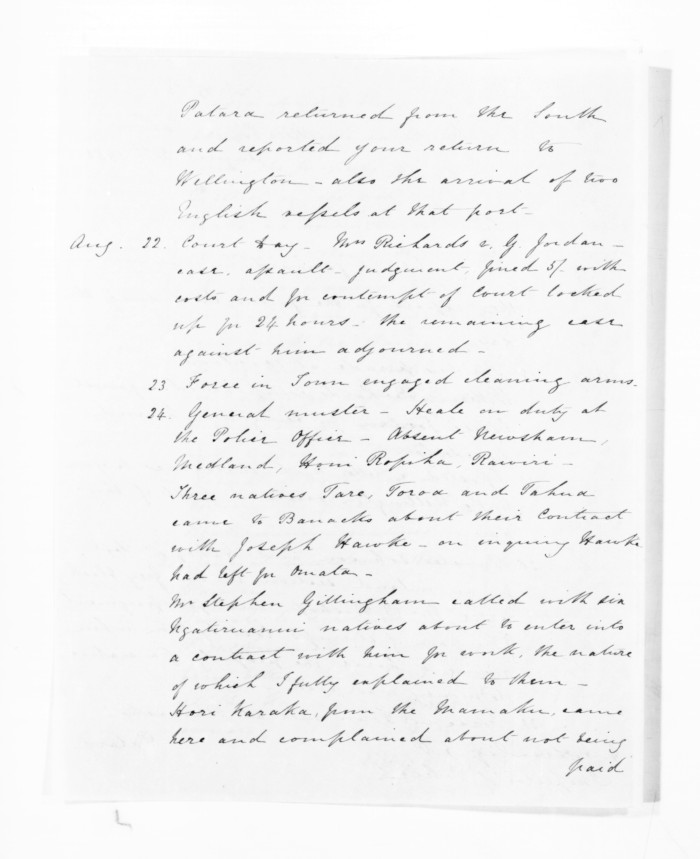 Patara returned from the South
and reported your return to
Wellington - also the arrival of two
English vessels at that port -
Aug. 22. Court Day - Mrs Richards v. G. Jordan -
case, assault - judgment, fined 5/- with
costs and for contempt of Court locked
up for 24 hours - the remaining case
against him adjourned -
23 Force in Town engaged cleaning arms -
24. General muster - Heale on duty at
the Police Office - Absent Newsham,
Medland, Honi Ropiha, Rawiri -
Three natives Tare, Toroa and Tahua
came to Barracks about their Contract
with Joseph Hawke - on inquiry Hawke
had left for Omata -
Mr Stephen Gillingham called with six
Ngatiruanui natives about to enter into
a contract with him for work, the nature
of which I fully explained to them -
Hori Karaka, from the Mamaku, came
here and complained about not being
paid